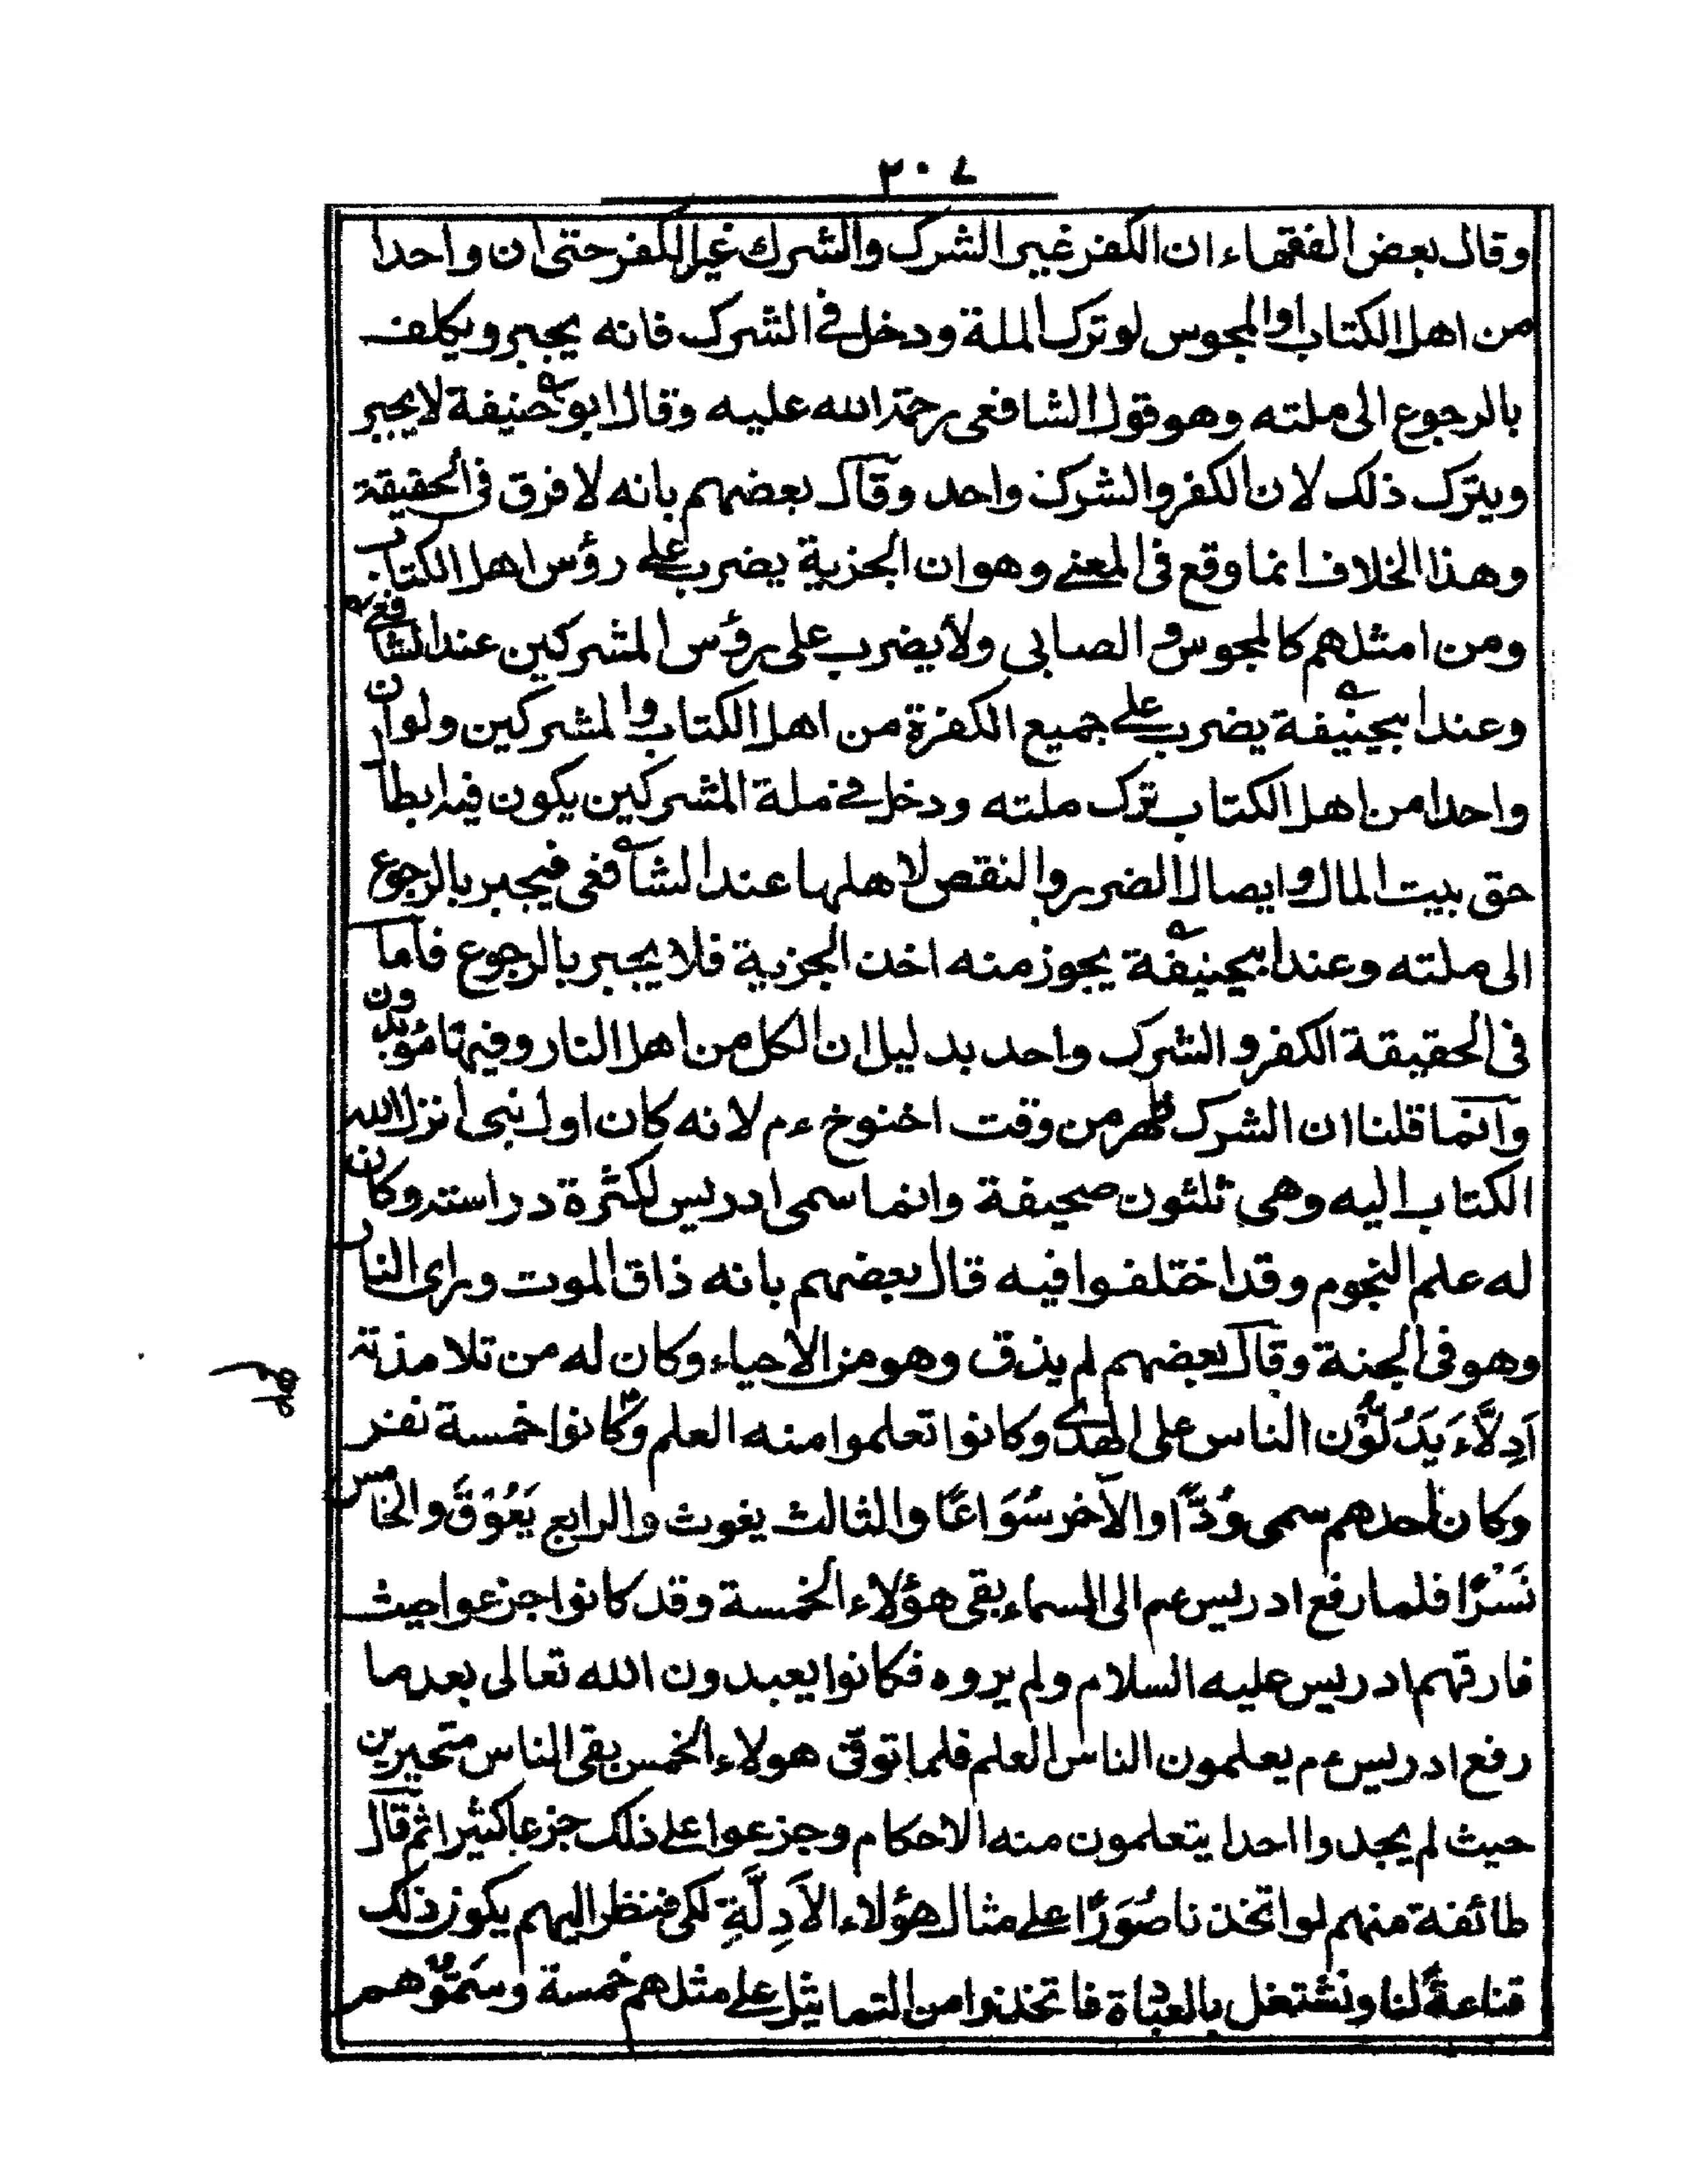 ٢٠٧
وقال بعض الفقهاء ان الكفر غير الشرك والشرك غير الكفر حتى ان واحدا
من اهل الكتاب او المجوس لو ترك الملة ودخل فى الشرك فانه يجبر ويكلف
بالرجوع الى ملته وهو قول الشافعى رحمة الله عليه وقال ابو حنيفة لا يجبر
ويترك ذلك لان الكفر والشرك واحد وقال بعضهم بانه لا فرق فى الحقيقة
وهذا الخلاف انما وقع فى المعنى وهو ان الجزية يضرب على رؤس اهل الكتاب
ومن امثلهم كالمجوس و الصابى ولا يضرب على رؤس المشركين عند الشافعى
وعند ابيحنيفة يضرب على جميع الكفرة من اهل الكتاب والمشركين ولو ان
واحدا من اهل الكتاب ترك ملته ودخل فى ملة المشركين يكون فيه ابطال
حق بيت المال وايصال الضرر والنقص لاهلها عند الشافعى فيجبر بالرجوع
الى ملته وعند ابيحنيفة يجوز منه اخذ الجزية فلا يجبر بالرجوع فاما
فى الحقيقة الكفر و الشرك واحد بدليل ان الكل من اهل النار وفيها مؤبدون
وانما قلنا ان الشرك ظهر من وقت اخنوخ ءم لانه كان اول نبى انزل الله
الكتاب اليه وهى ثلثون صحيفة وانما سمى ادريس لكثرة دراسته وكان
له علم النجوم وقد اختلفوا فيه قال بعضهم بانه ذاق الموت وراى النار
وهو فى الجنة وقال بعضهم لم يذق وهو من الاحياء وكان له من تلامذته
اَدِلَّاءَ يَدُلُّوْن الناس على الهدى وكانوا تعلموا منه العلم وكانوا خمسة نفر
وكان احدهم سمى وُدًّا والآخر سُوَاعًا والثالث يغوث والرابع يَعُوْقَ والخامس
نَسْرًا فلما رفع ادريس عم الى السماء بقى هؤلاء الخمسة وقد كانوا جزعوا حيث
فارقهم ادريس عليه السلام ولم يروه فكانوا يعبدون الله تعالى بعد ما
رفع ادريس ءم يعلمون الناس العلم فلما توفى هولاء الخمس بقى الناس متحيرين
حيث لم يجدوا احدا يتعلمون منه الاحكام وجزعوا على ذلك جزعا كثيرا ثم قال
طائفة منهم لو اتخذنا صُوَرًا على مثال هؤلاء الاَدِلَّةِ لكى فننظر اليهم يكون ذلك
قناعةً لنا ونشتغل بالعبادة فاتخذوا من التماثيل على مثلهم خمسة وسَمَّوْهم